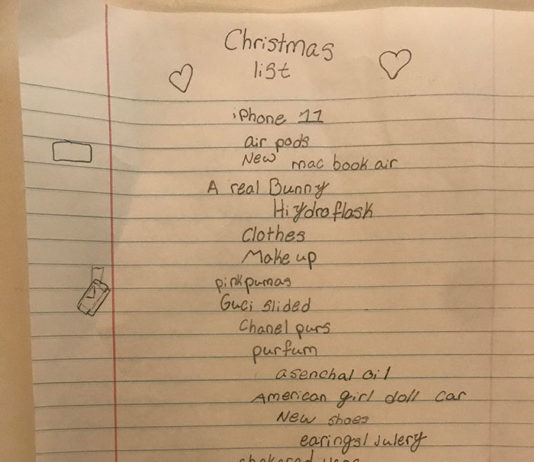 Christmas
list
iPhone 11
air pods
New mac book air
A real Bunny
Hiydroflask
Clothes
Make up
pinkpumas
Guci slided
Chanel purs
purfum
asenchal oil
American girl doll car
New shoes
earings/Julery